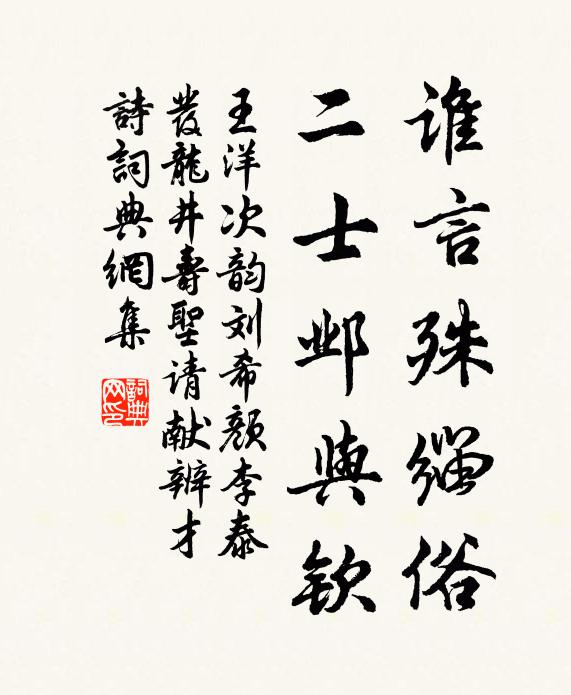 谁言殊缁俗
二士邺与钦
王洋次韵刘希颜李泰
发龙井寿圣请献辨才
詩詞典網集
詞典网印